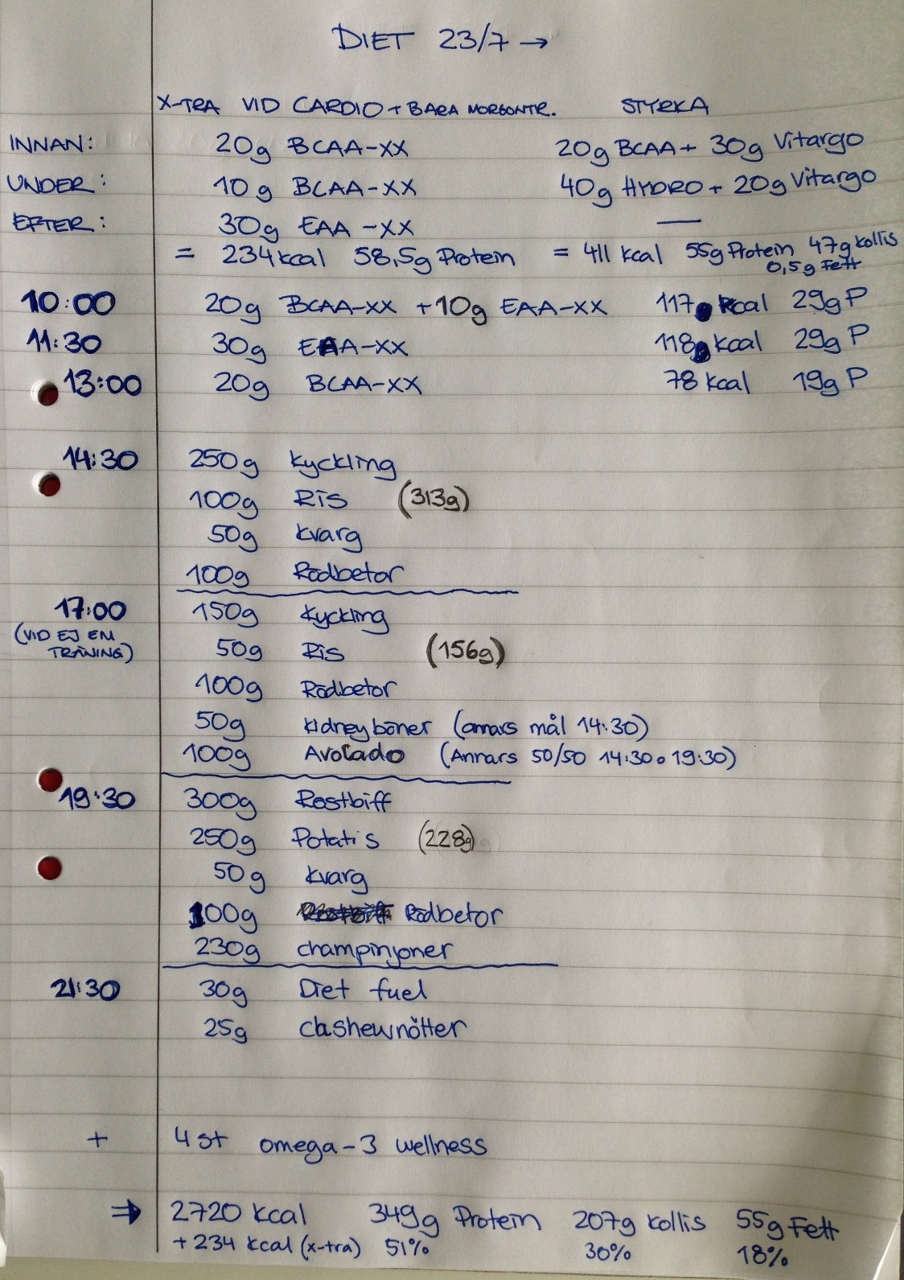 DIET 23/7 →
X-TRA VID CARDIO + BARA MORGONTR. STYRKA
INNAN: 20g BCAA-XX 20g BCAA + 30g Vitargo
UNDER: 10g BCAA-XX 40g HYDRO + 20g Vitargo
EFTER: 30g EAA-XX —
= 234 kcal 58,5g Protein = 411 kcal 55g Protein 47g kollis
0,5g Fett
10:00 20g BCAA-XX + 10g EAA-XX 117 kcal 29g P
11:30 30g EAA-XX 118 kcal 29g P
13:00 20g BCAA-XX 78 kcal 19g P
14:30 250g kyckling
100g Ris (313g)
50g kvarg
100g Rödbetor
17:00 150g kyckling
(VID EJ EM TRÄNING) 50g Ris (156g)
100g Rödbetor
50g kidneyböner (annars mål 14:30)
100g Avocado (Annars 50/50 14:30 o 19:30)
19:30 300g Rostbiff
250g Potatis (228g)
50g kvarg
100g Rödbetor
230g champinjoner
21:30 30g Diet fuel
25g cashewnötter
+ 4 st omega-3 wellness
⇒ 2720 kcal 349g Protein 207g kollis 55g Fett
+ 234 kcal (x-tra) 51% 30% 18%